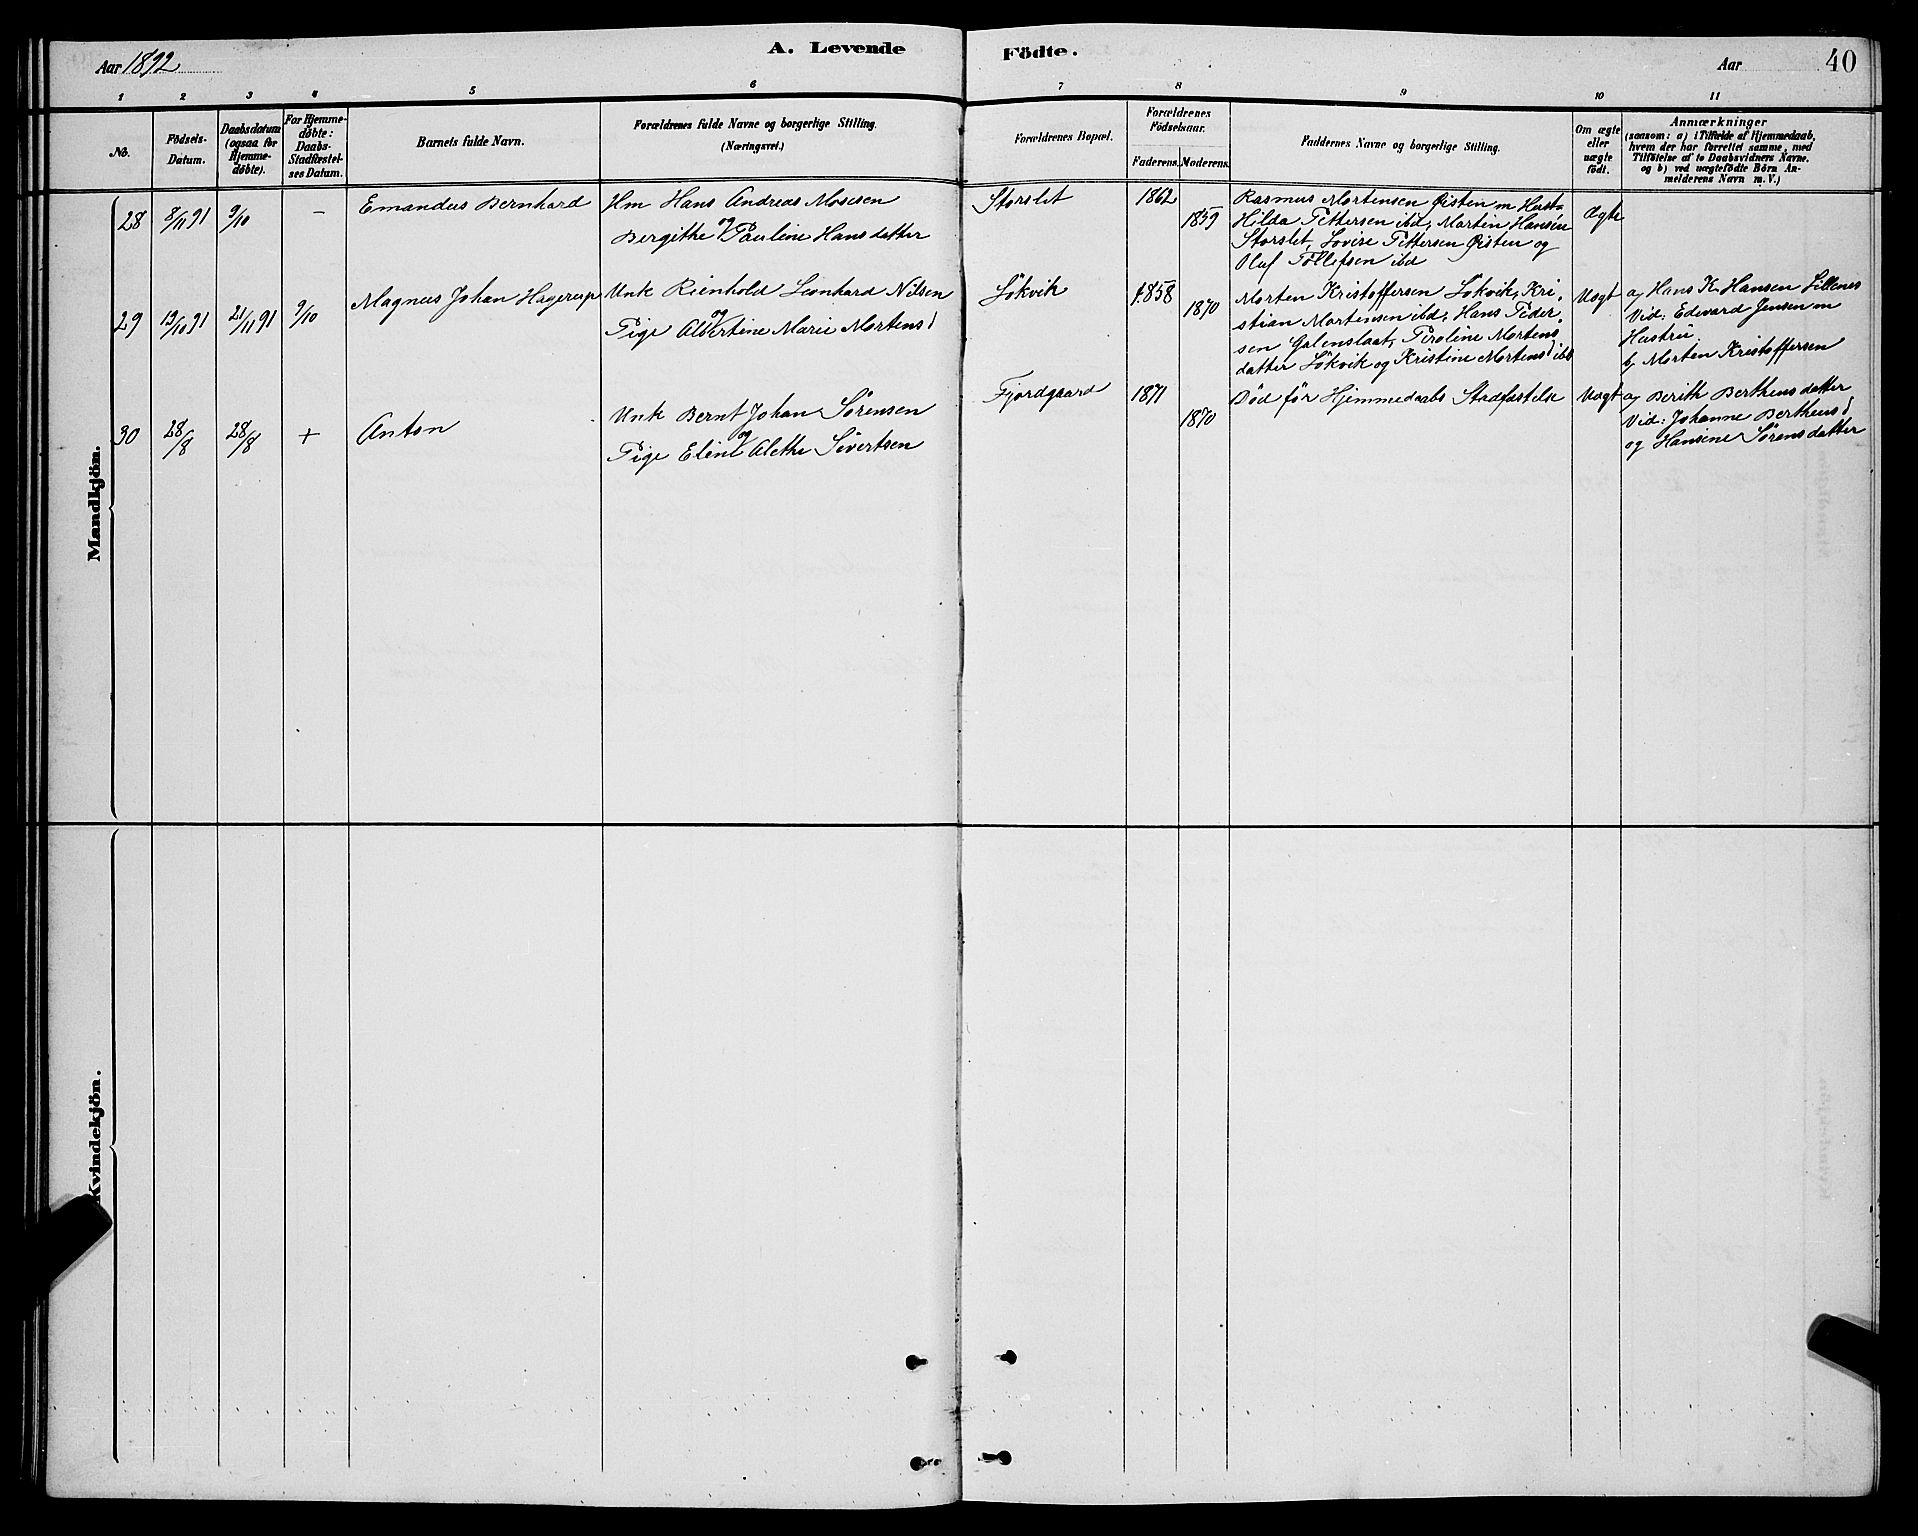 Aar 1892
A. Levende
Födte.
Aar
40
1 2 3 4 5 6 7 8 9 10 11
No.
Födsels-
Datum.
Daabsdatum
(ogsaa for
Hjemme-
döbte).
For Hjemme-
döbte:
Daabs-
Stadfæstel-
ses Datum.
Barnets fulde Navn.
Forældrenes fulde Navne og borgerlige Stilling.
(Næringsvei.)
Forældrenes Bopæl.
Forældrenes
Födselsaar.
Faderens.
Moderens.
Faddernes Navne og borgerlige Stilling.
Om ægte
eller
uægte
födt.
Anmærkninger
(saasom: a) i Tilfælde af Hjemmedaab,
hvem der har forrettet samme, med
Tilföielse af to Daabsvidners Navne.
og b) ved uægtefödte Börn An-
melderens Navn m. V.)
Mandkjön.
28
8/11 91
9/10
-
Emandus Bernhard
Hm Hans Andreas Mosesen
og
Bergithe Pauline Hansdatter
Storslet
1862
1859
Rasmus Mortensen Øisten m Hust=
Hilda Pettersen ibd, Morten Hansen
Storslet, Lovise Pettersen Øisten og
Oluf Tollefsen ibd
Ægte
29
19/10 91
21/11 91
9/10
Magnus Johan Hagerup
Unk Rienhold Leonhard Nilsen
og
Pige Albertine Marie Mortensd
Lökvik
1858
1870
Morten Kristoffersen Lökvik, Kri-
stian Mortensen ibd, Hans Peder-
sen Galenslaat, Peroline Mortens
datter Lökvik og Kristine Mortensd ibd
Uægt
a, Hans K. Hansen Lillenes
Vid: Edevard Jensen m
Hustru
b, Morten Kristoffersen
30
28/8
28/8
+
Anton
Unk Bernt Johan Sørensen
og
Pige Eline Alethe Sivertsen
Fjordgaard
1871
1870
Död før Hjemmedaabs Stadfæstelse
Uægt
a, Berith Berthensdatter
Vid: Johanne Berthensd
og Hansine Sørensdatter
Kvindekjön.